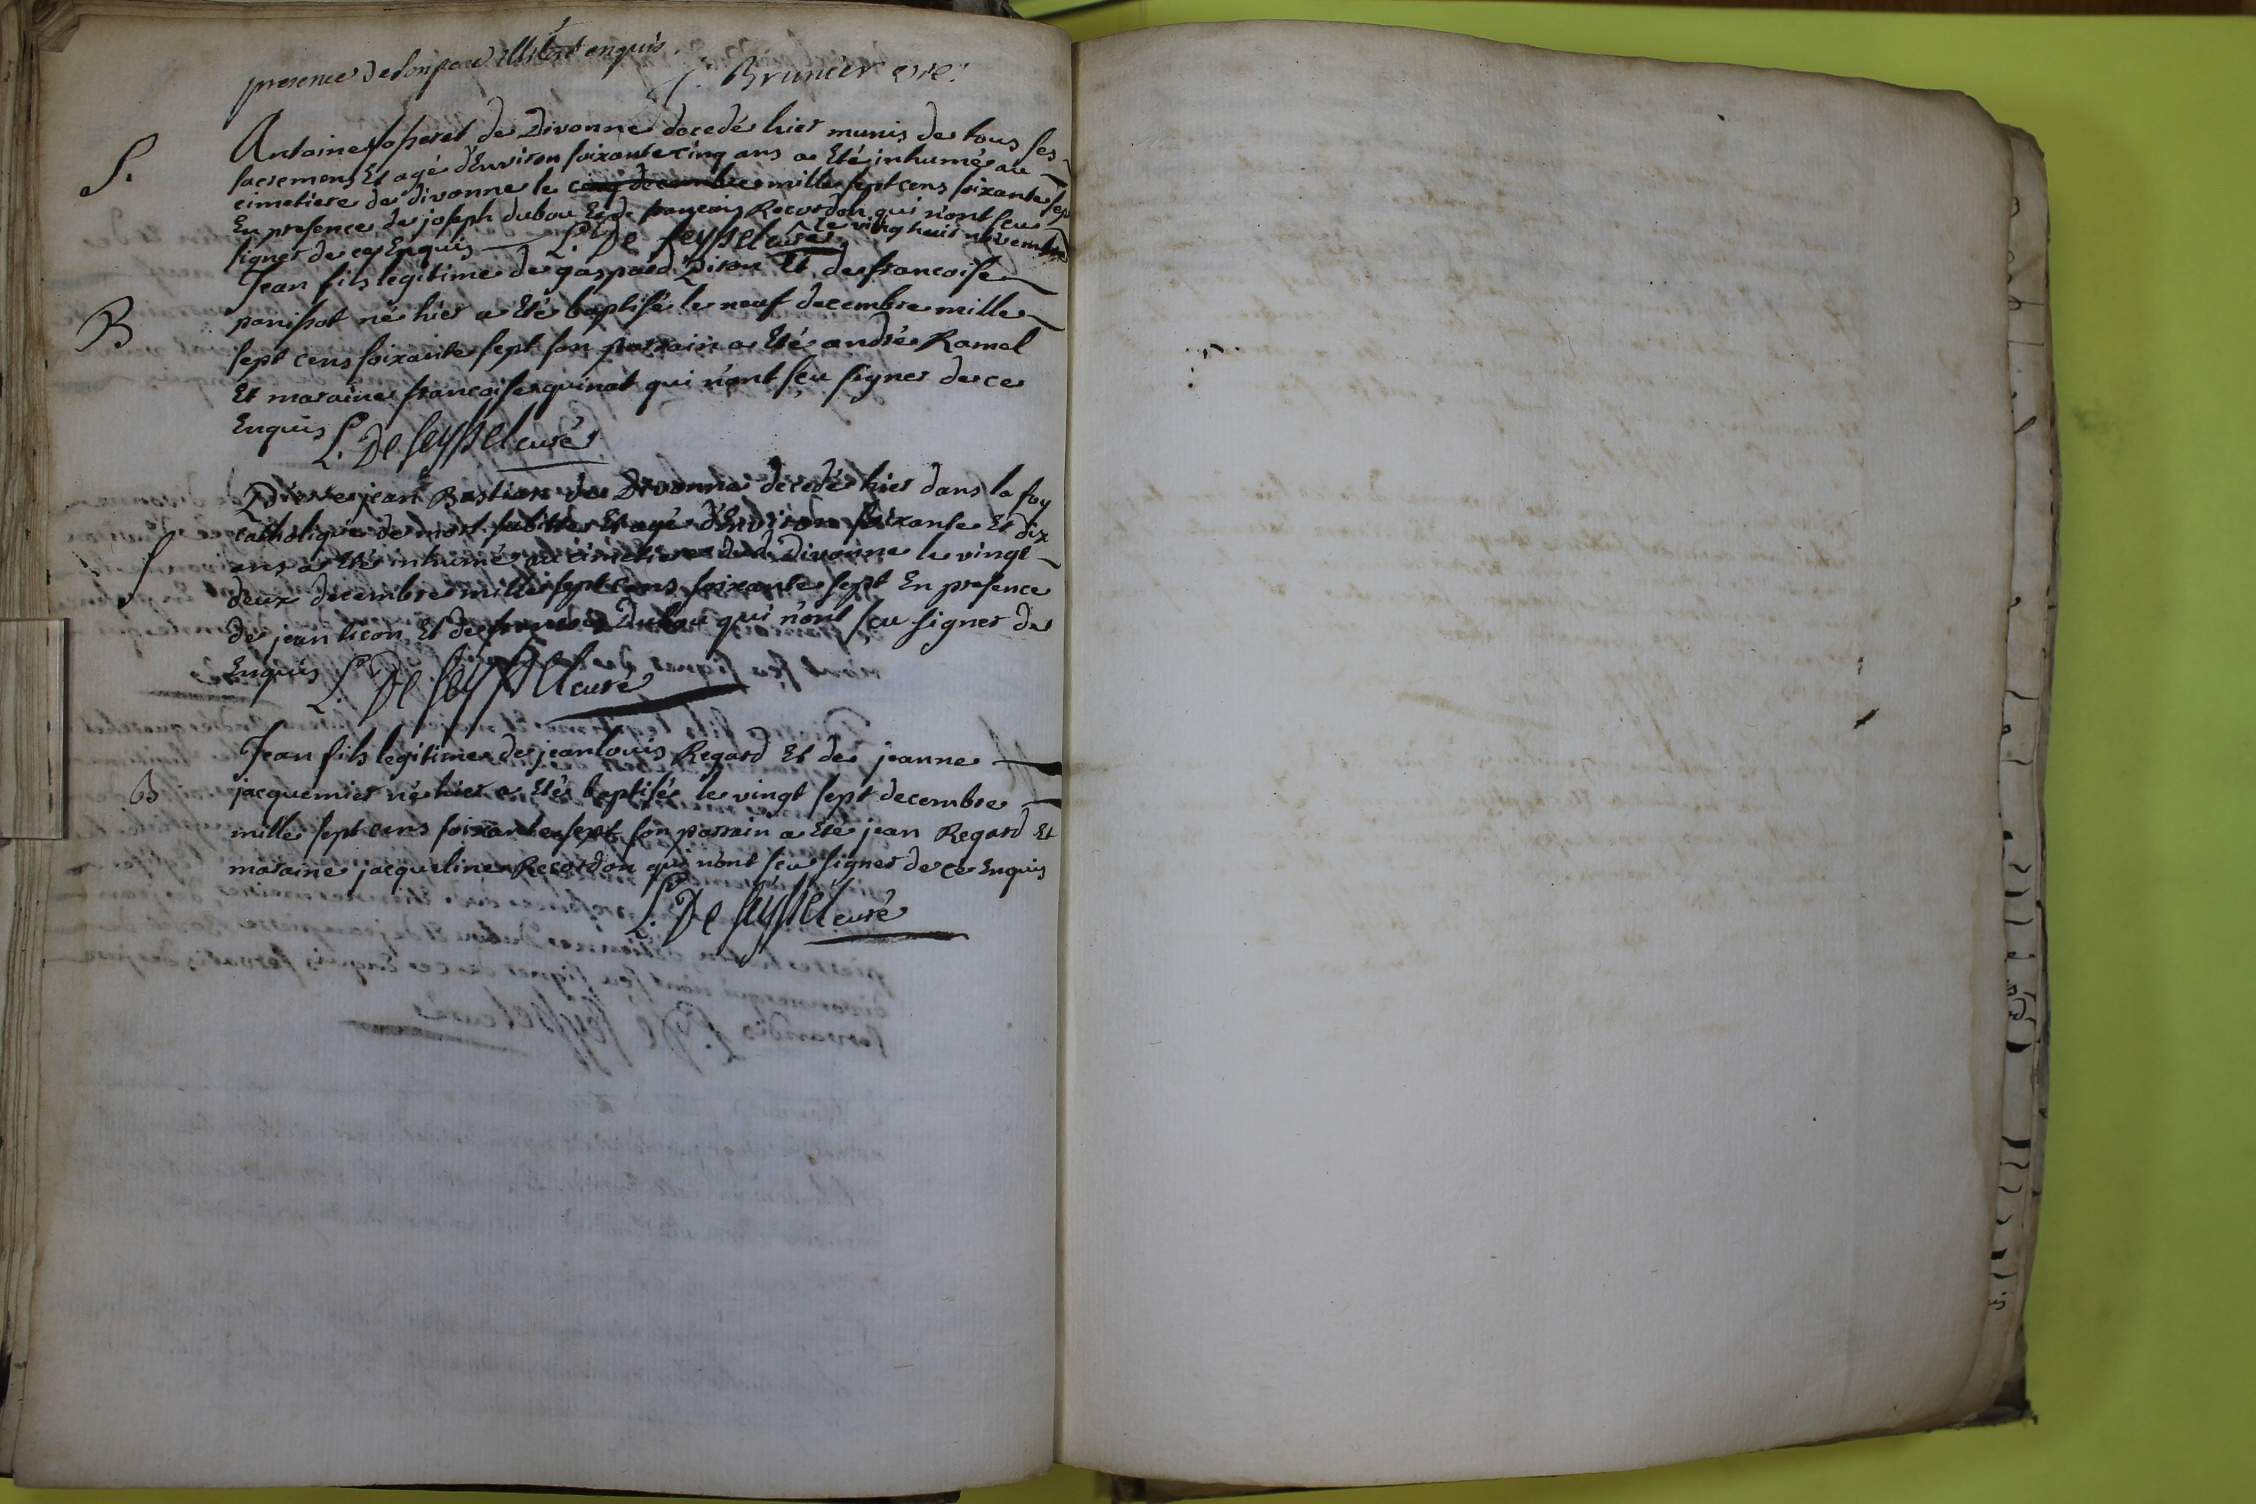 presence de son pere illiteré enquis.
J. Brunier vre.
S.
Antoine laperel de Divonne decedé hier munis de tous ses
sacremens Et agé d'Environ soixante cinq ans a Eté inhumé au
cimetiere de divonne le cinq decembre mille sept cens soixante sept
En presence de joseph dubou Et de francois Recordon qui n'ont sçu
le ving huit novembre
signer de ce Enquis L. De Seyssel curé
B
Jean fils legitime de gaspard Piron Et de francoise
panissot né hier a Eté baptisé le neuf decembre mille
sept cens soixante sept son parrain a Eté andré Ramel
Et maraine francoise quinat qui n'ont sçu signer de ce
Enquis L. De Seyssel curé
S
Pierre jean Bastian de Divonne decedé hier dans la foy
catholique de mort subitte Et agé d'Environ soixante Et dix
ans a Eté inhumé au cimetiere dud. Divonne le vingt
deux decembre mille sept cens soixante sept En presence
de jean licon Et de francois Dubou qui n'ont sçu signer de
Enquis L. De Seyssel curé
B
Jean fils legitime de jean louis Regard Et de jeanne
jacquemier né hier a Eté baptisé le vingt sept decembre
mille sept cens soixante sept son parrain a Eté jean Regard Et
maraine jacqueline Recordon qui n'ont sçu signer de ce Enquis
L. De Seyssel curé